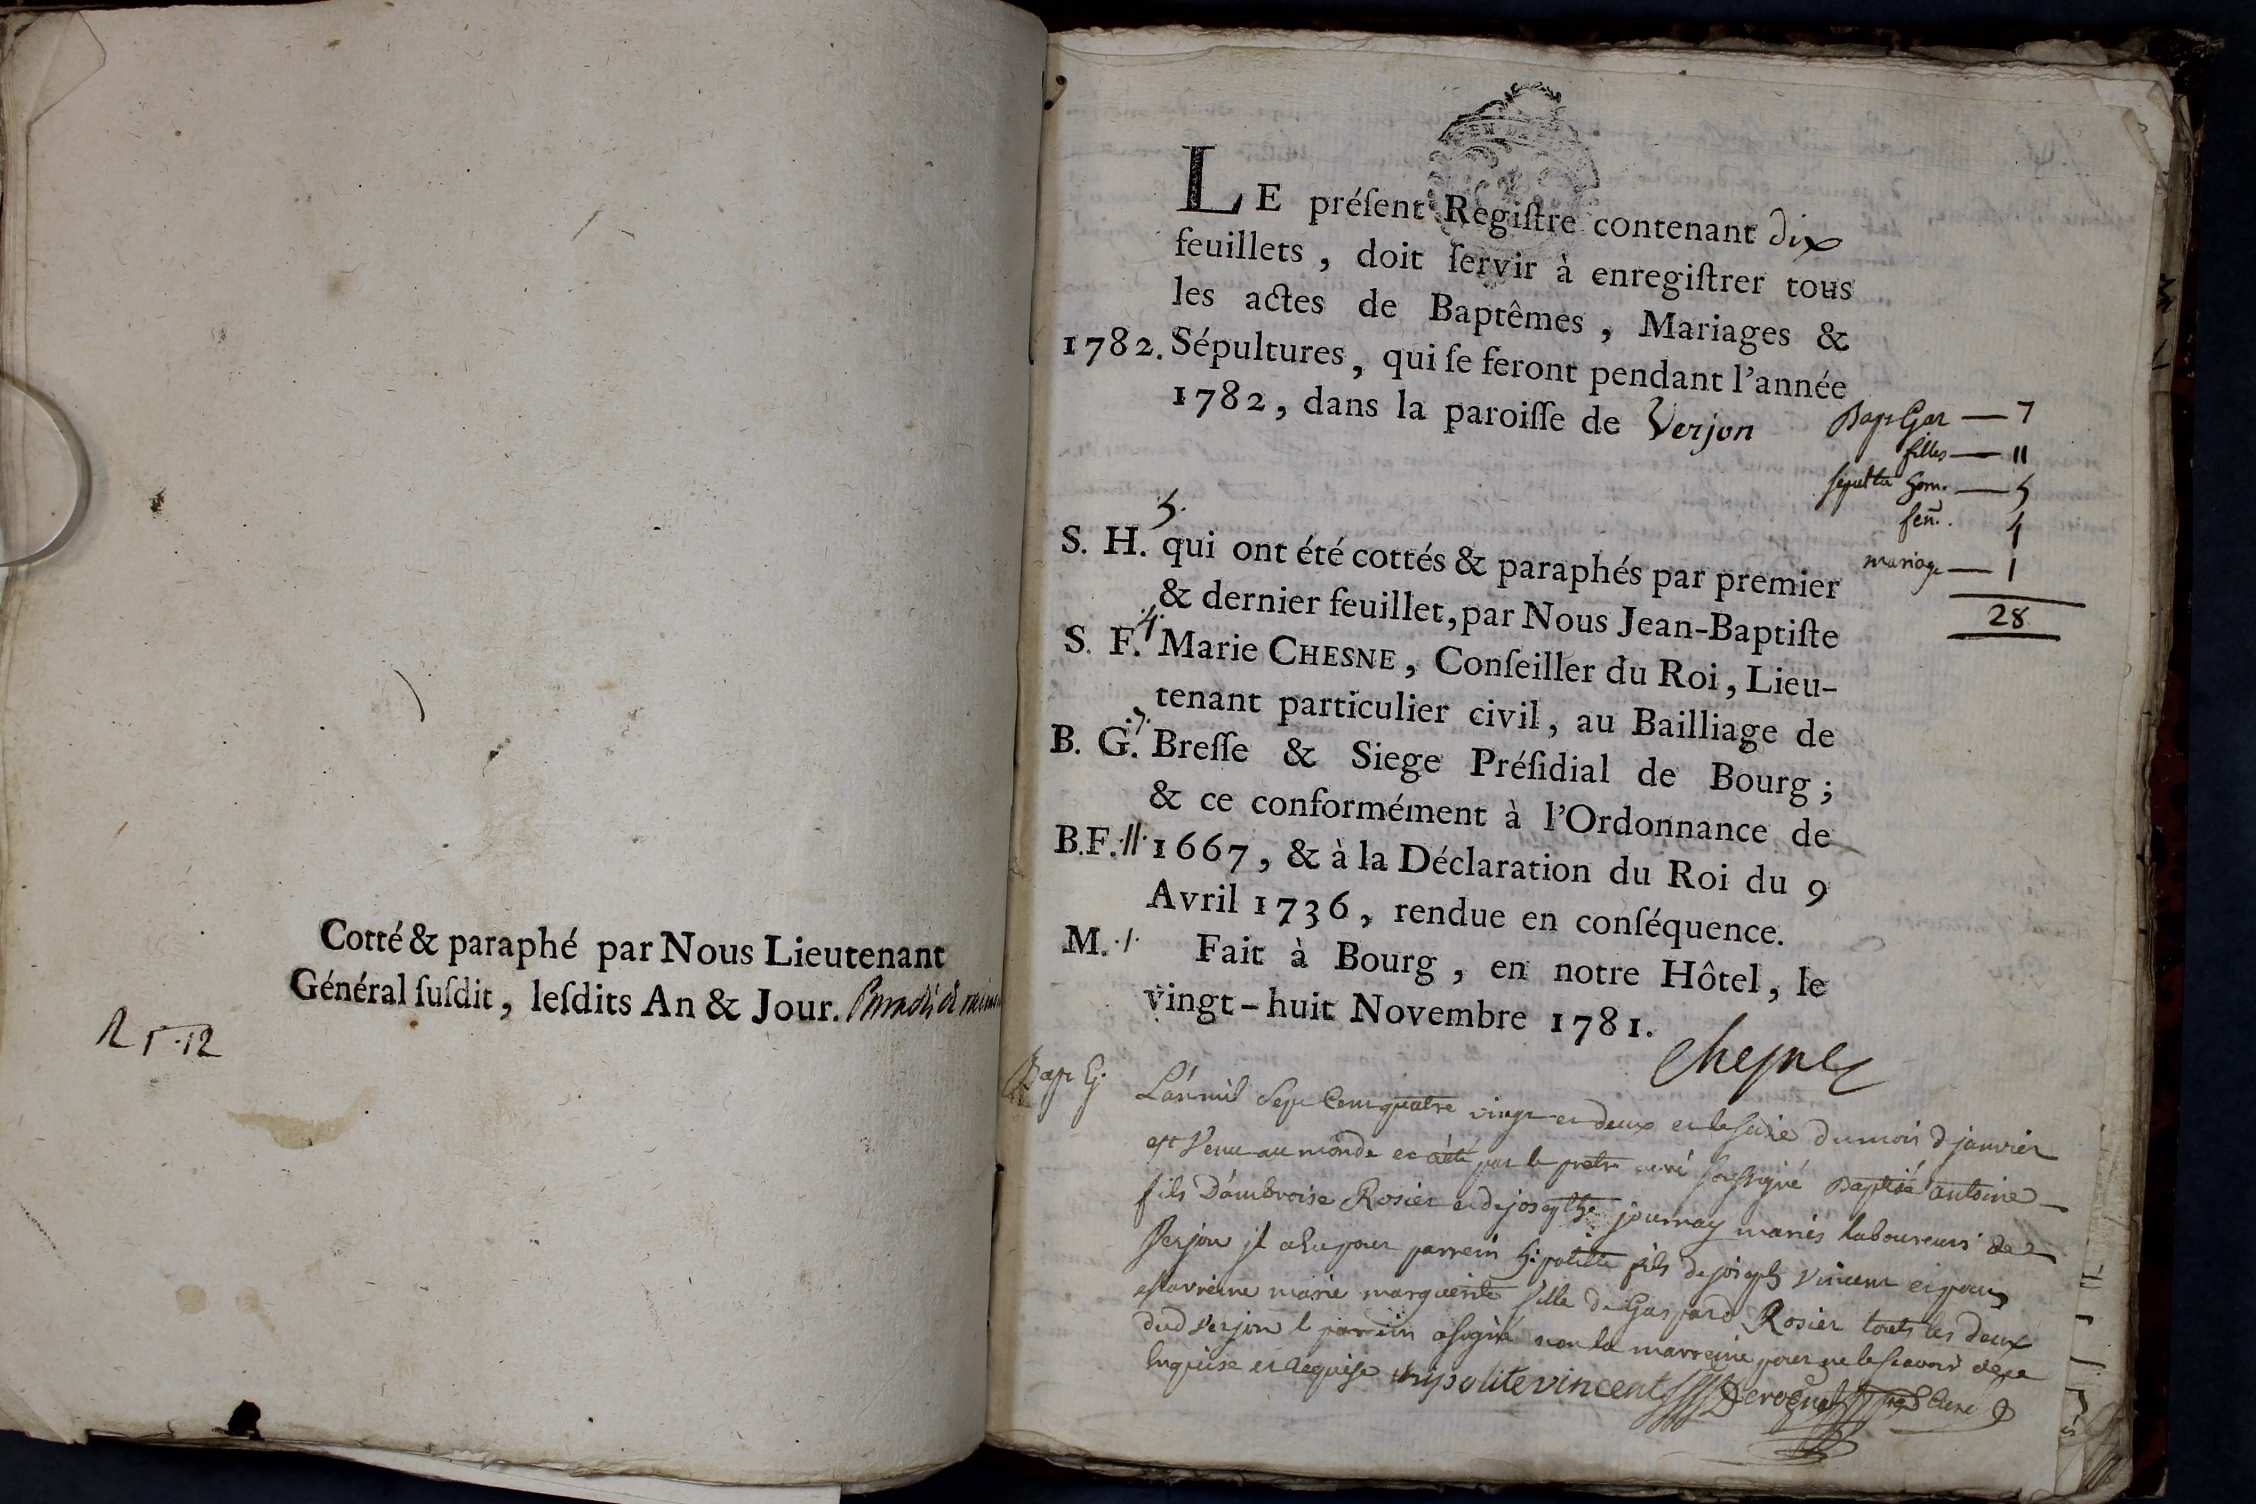 Cotté & paraphé par Nous Lieutenant
Général ſuſdit, leſdits An & Jour.
LE préſent Regiſtre contenant dix
feuillets, doit ſervir à enregiſtrer tous
les actes de Baptêmes, Mariages &
1782. Sépultures, qui ſe feront pendant l'année
1782, dans la paroiſſe de Verjon
Bap Gar — 7
filles — 11
sepultu hom. — 5
fem. 4
mariage — 1
28
5.
S. H. qui ont été cottés & paraphés par premier
& dernier feuillet, par Nous Jean-Baptiſte
S. F. 4. Marie CHESNE, Conſeiller du Roi, Lieu-
tenant particulier civil, au Bailliage de
B. G. .7. Breſſe & Siege Préſidial de Bourg;
& ce conformément à l'Ordonnance de
B.F. .11. 1667, & à la Déclaration du Roi du 9
Avril 1736, rendue en conſéquence.
M. .1. Fait à Bourg, en notre Hôtel, le
vingt-huit Novembre 1781.
Chesne
Bap G. L'an mil sept cent quatre vingt et deux et le seize du mois d janvier
est venu au monde et a été par le pretre curé soussigné Baptisé antoine
fils D'ambroise Rosier et de josephe journay mariés laboureurs de
Verjon il a eu pour parrein hipolitte fils de joseph Vincent et pour
marreine marie marguerite fille de Gaspard Rosier touts les deux
dud verjon l parrein a signé non la marreine pour ne le scavoir de ce
Enquise et Requise hypolite vincent Derognat curé